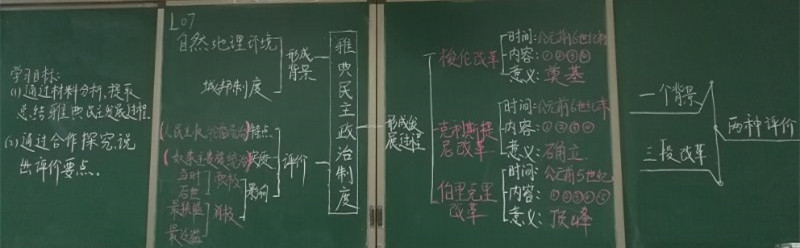 学习目标:
(1)通过材料分析,提取
总结雅典民主发展过程.
(2)通过合作探究,说
出评价要点.
L07
自然地理环境
城邦制度
形成
背景
(人民主权,轮番而治)特点
评价
影响
积极
消极
雅典民主政治制度
形成发
展过程
梭伦改革
时间:公元前6世纪初
内容:①②③④
意义:奠基
克利斯提
尼改革
时间:公元前6世纪末
内容:①②③④
意义:确立
伯里克里
改革
时间:公元前5世纪
内容:①②③④⑤
意义:顶峰
一个背景
三段改革
两种评价